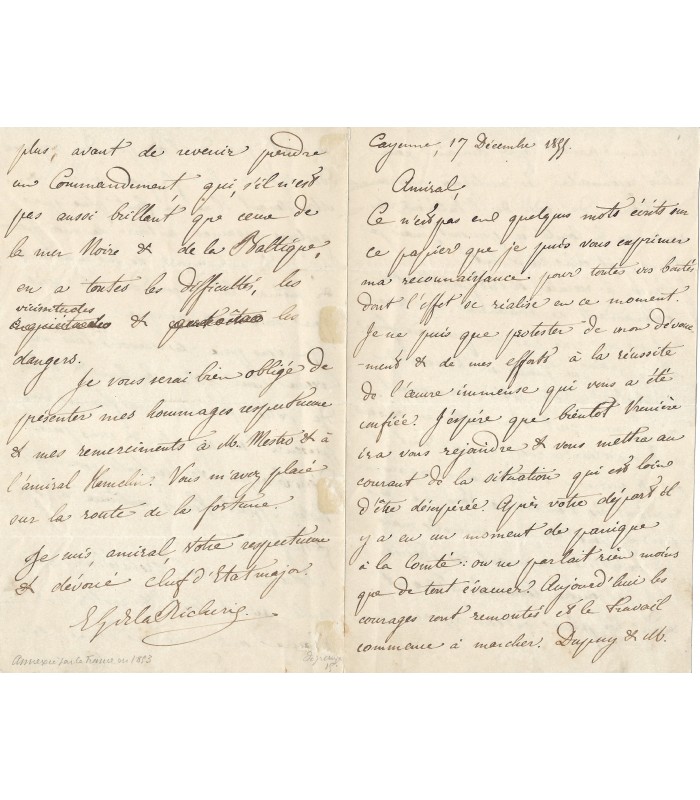 Cayenne, 17 Décembre 1855.
Amiral,
Ce n'est pas en quelques mots écrits sur
ce papier que je puis vous exprimer
ma reconnaissance pour toutes vos bontés
dont l'effet se réalise en ce moment.
Je ne puis que protester de mon dévoue
-ment & de mes efforts à la réussite
de l'œuvre immense qui vous a été
confiée. J'espère que bientôt
ira vous rejoindre & vous mettra au
courant de la situation qui est loin
d'être désespérée. Après votre départ il
y a eu un moment de panique
à la Comté: on ne parlait rien moins
que de tout évacuer? Aujourd'hui les
courages sont remontés et le travail
commence à marcher. Dupuy & M.
plus, avant de revenir prendre
un Commandement qui, s'il n'est
pas aussi brillant que ceux de
la mer Noire & de la Baltique,
en a toutes les difficultés, les
vicissitudes & les
dangers.
Je vous serai bien obligé de
présenter mes hommages respectueux
& mes remerciments à M. Mestro & à
l'amiral Hamelin. Vous m'avez placé
sur la route de la fortune.
Je suis, amiral, votre respectueux
& dévoué chef d'Etat major.
de la Richerie